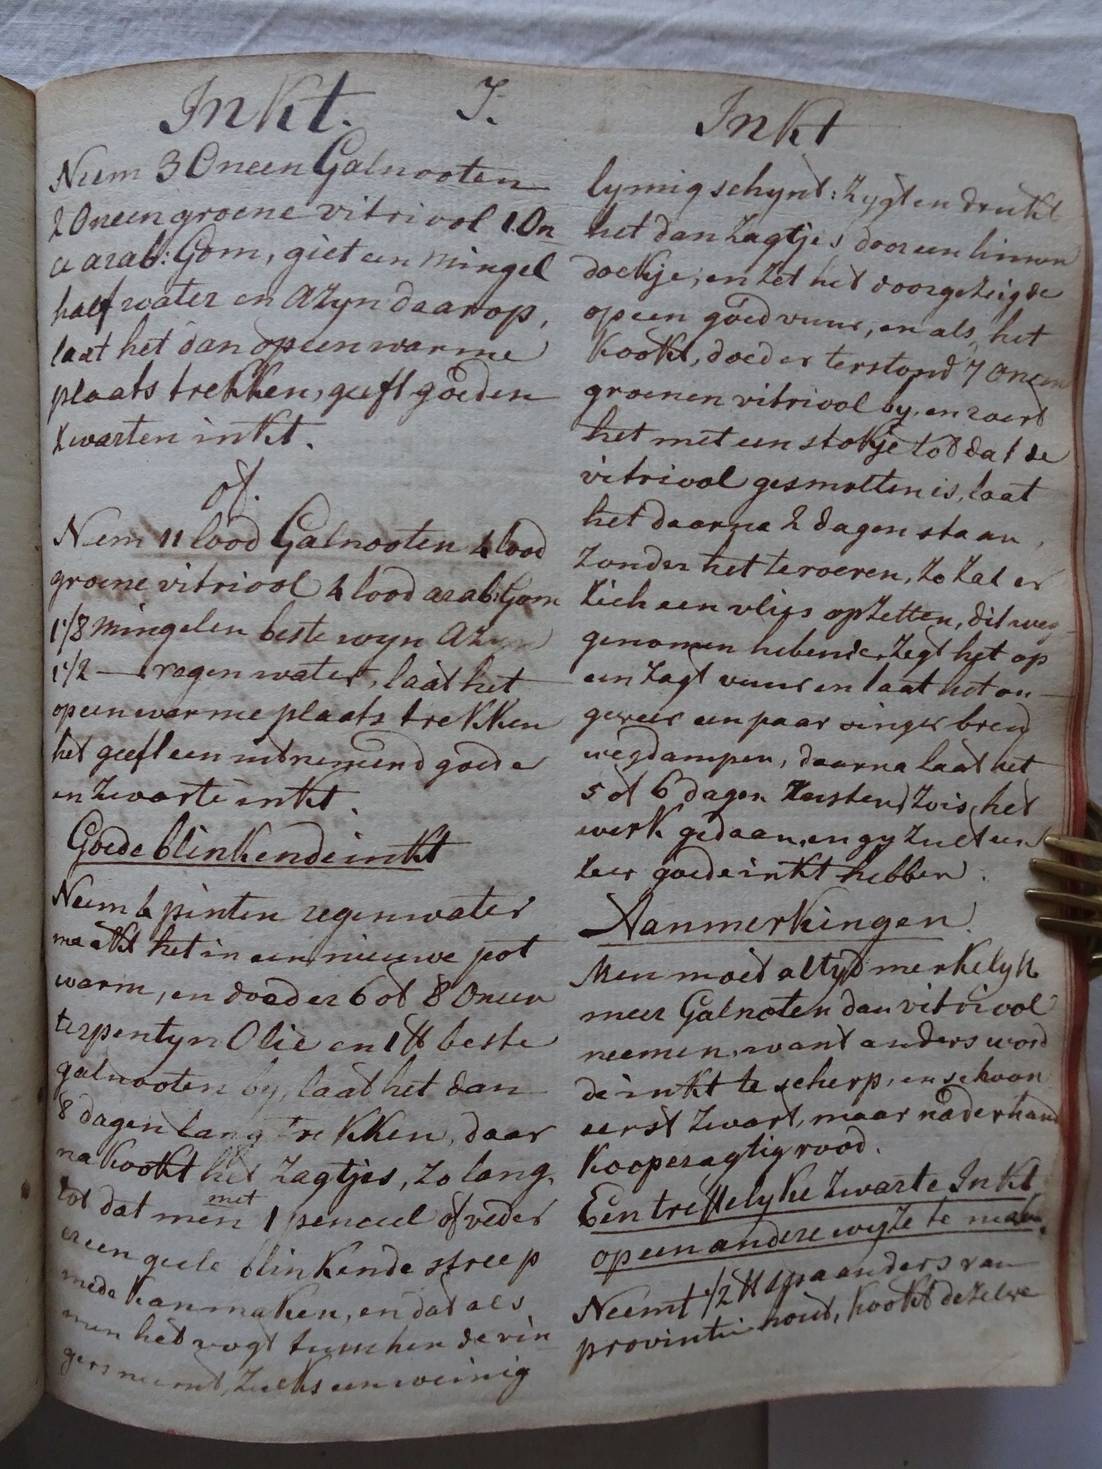 Inkt. I.
Neem 3 Oncen Galnooten
2 Oncen groene vitriool 1 On
ce arab: Gom, giet een mingel
half water en Azyn daar op,
laat het dan op een warme
plaats trekken, geeft goeden
zwarten inkt.
of.
Nem 11 lood Galnooten 4 lood
groene vitriool 4 lood arab: Gom
1 1/8 mingelen beste wyn Azyn
1 1/2 — regen water, laat het
op een warme plaats trekken
het geeft een uitnemend goede
en zwarte inkt.
Goede blinkende inkt
Neem 6 pinten regenwater
maakt het in een nieuwe pot
warm, en doed er 6 of 8 Oncen
terpentyn Olie en 1 ℔ beste
galnooten by, laat het dan
8 dagen lang trekken, daar
na kookt het zagtjes, zo lang,
tot dat men met 1 penceel of veder
er een geele blinkende streep
mede kan maken, en dat als
men het vogt tusschen de vin
gers neemt, zulks een weinig
Inkt
lymig schynt: zygt en drukt
het dan zagtjes door een linnen
doekje, en zet het doorgezeigde
op een goed vuur, en als het
kookt, doed er terstond 7 Oncen
groenen vitriool by, en roert
het met een stokje tot dat de
vitriool gesmolten is, laat
het daarna 2 dagen staan,
zonder het te roeren, zo zal er
zich een vlies op zetten, dit weg
genomen hebende, zegt het op
een zagt vuur en laat het on
geveer een paar vinger breed
wegdampen, daarna laat het
5 of 6 dagen staan, zo is het
werk gedaan, en gy zult een
zeer goede inkt hebben.
Aanmerkingen.
Men moet altyd merkelyk
meer Galnoten dan vitriool
neemen, want anders word
de inkt te scherp, en schoon
eerst zwart, maar naderhand
kooperagtig rood.
Een treffelyke zwarte Inkt
op een andere wyze te maken.
Neemt 1/2 ℔ spaanders van
provintie hout, kookt dezelve